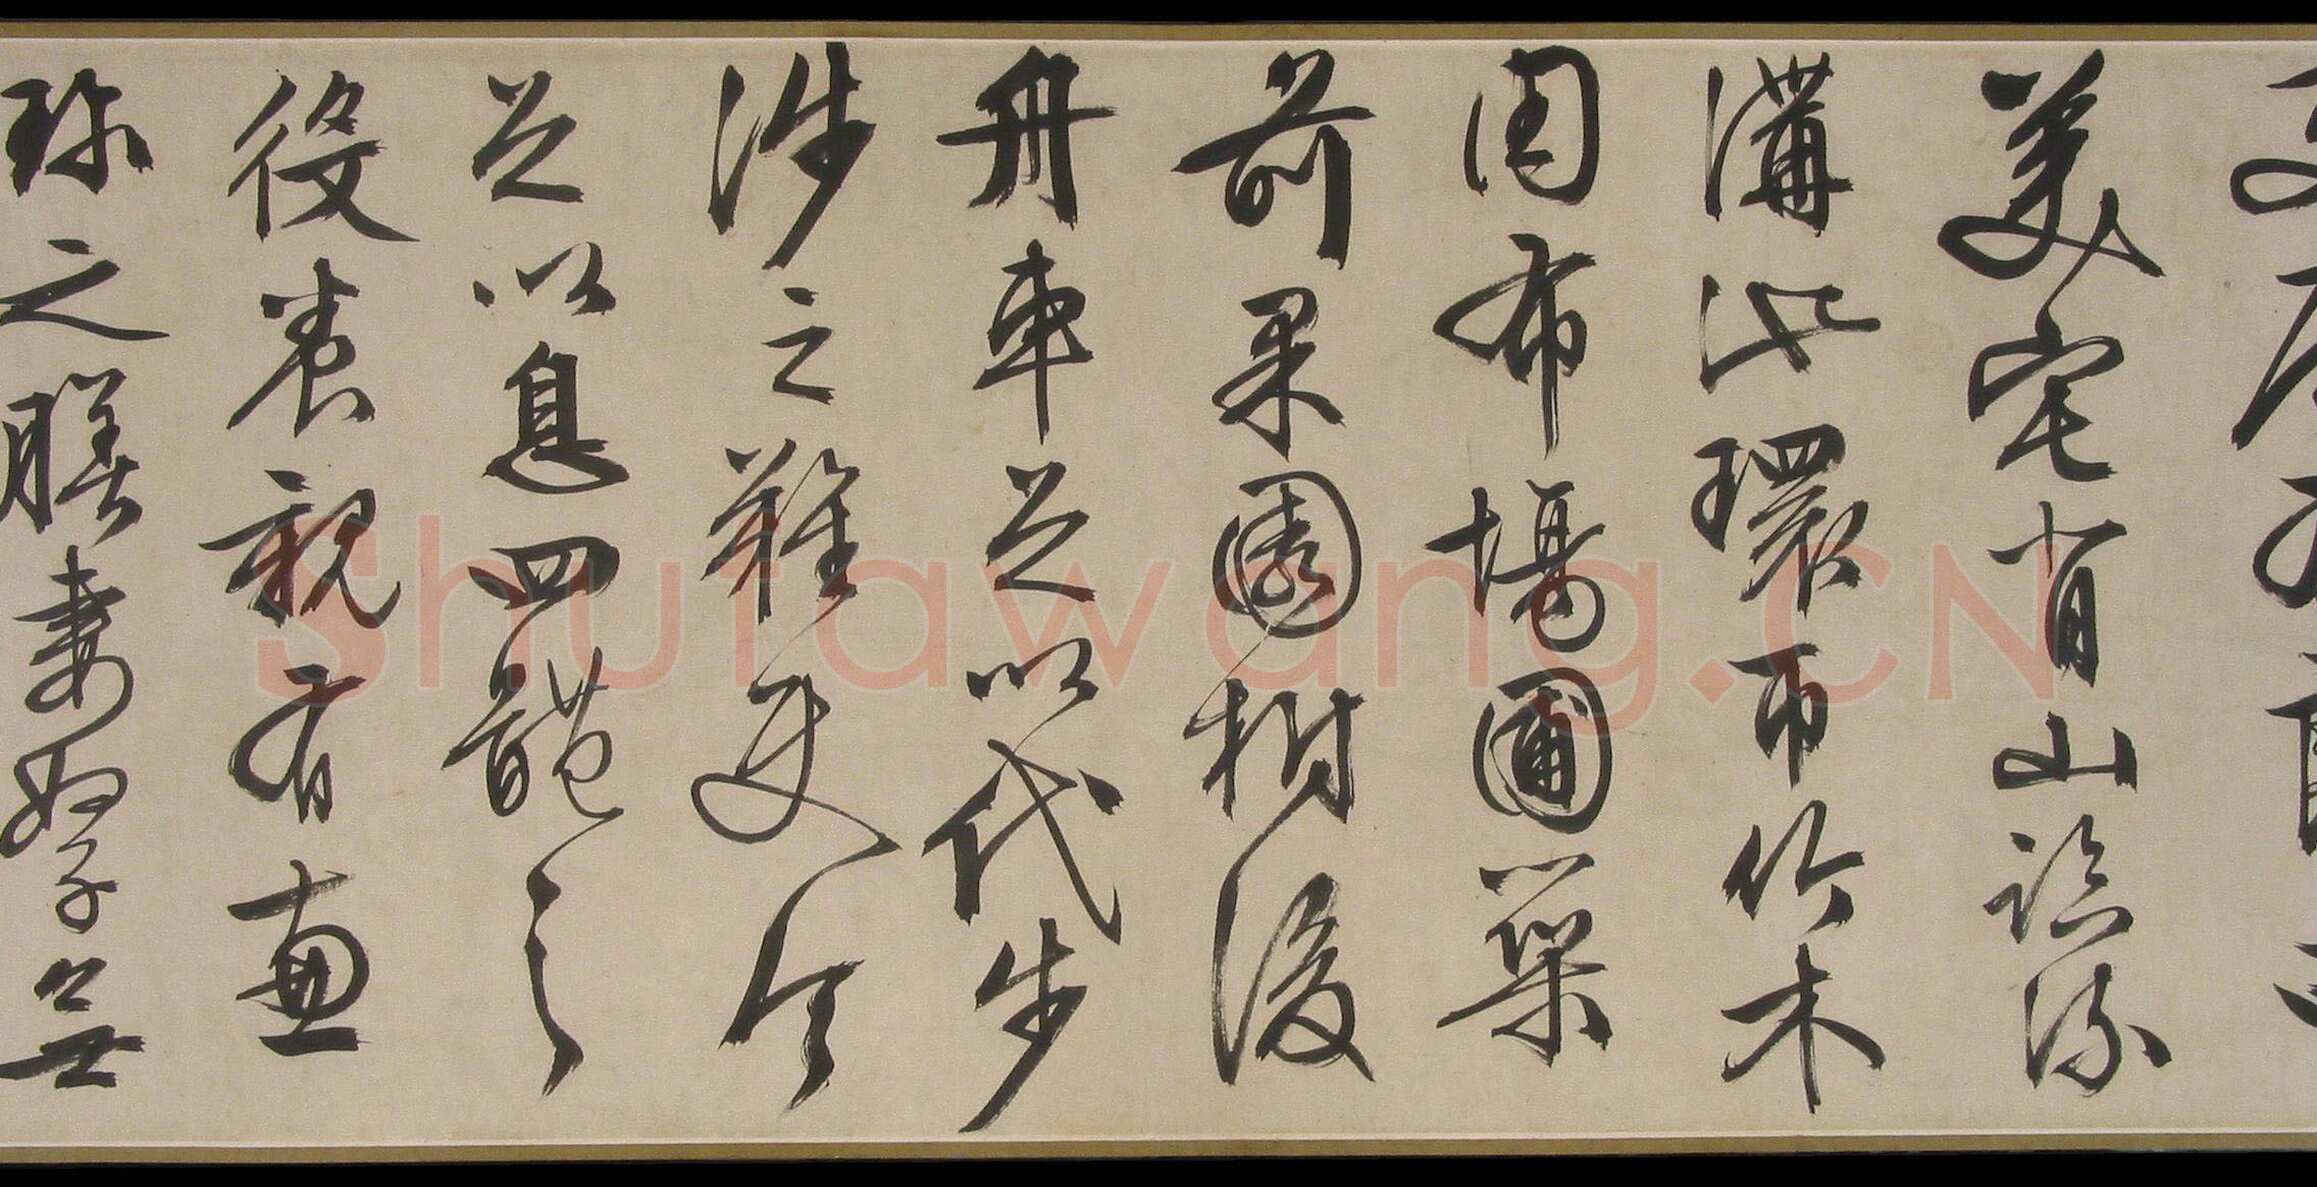 美宅背山臨流
溝池環帀竹木
周布場圃築
前果園樹後
舟車足以代步
涉之難使令
足以息四體之
役養親有兼
珍之膳妻孥無
Shufawang.CN